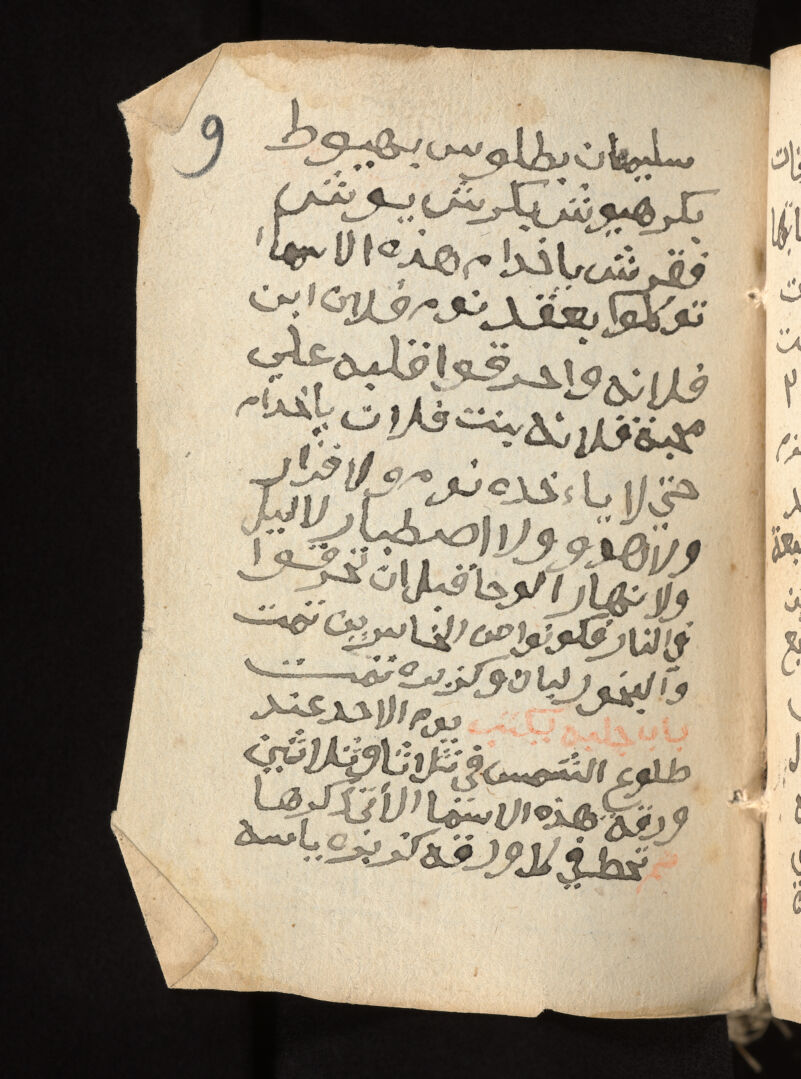 9
سليمان بطلوس بهيوط
بكرهيوش بكرش يوش
فقرش ياخدام هذه الاسما
توكلوا بعقد نوم فلان ابن
فلانه واحرقوا قلبه علي
محبة فلانه بنت فلان ياخدام
حتي لا ياءخده نوم ولا قرار
ولا هدو ولا اصطبار لا ليل
ولا نهار الوحا قبل ان تحرقوا
في النار فكونوا من الخاسرين تمت
والبخور لبان وكزبره تمت
باب جلبه يكتب يوم الاحد عند
طلوع الشمس في ثلاثا وثلاثين
ورقة هذه الاسما الأتي ذكرها
ثم تحط في كل ورقه كزبره يابسه